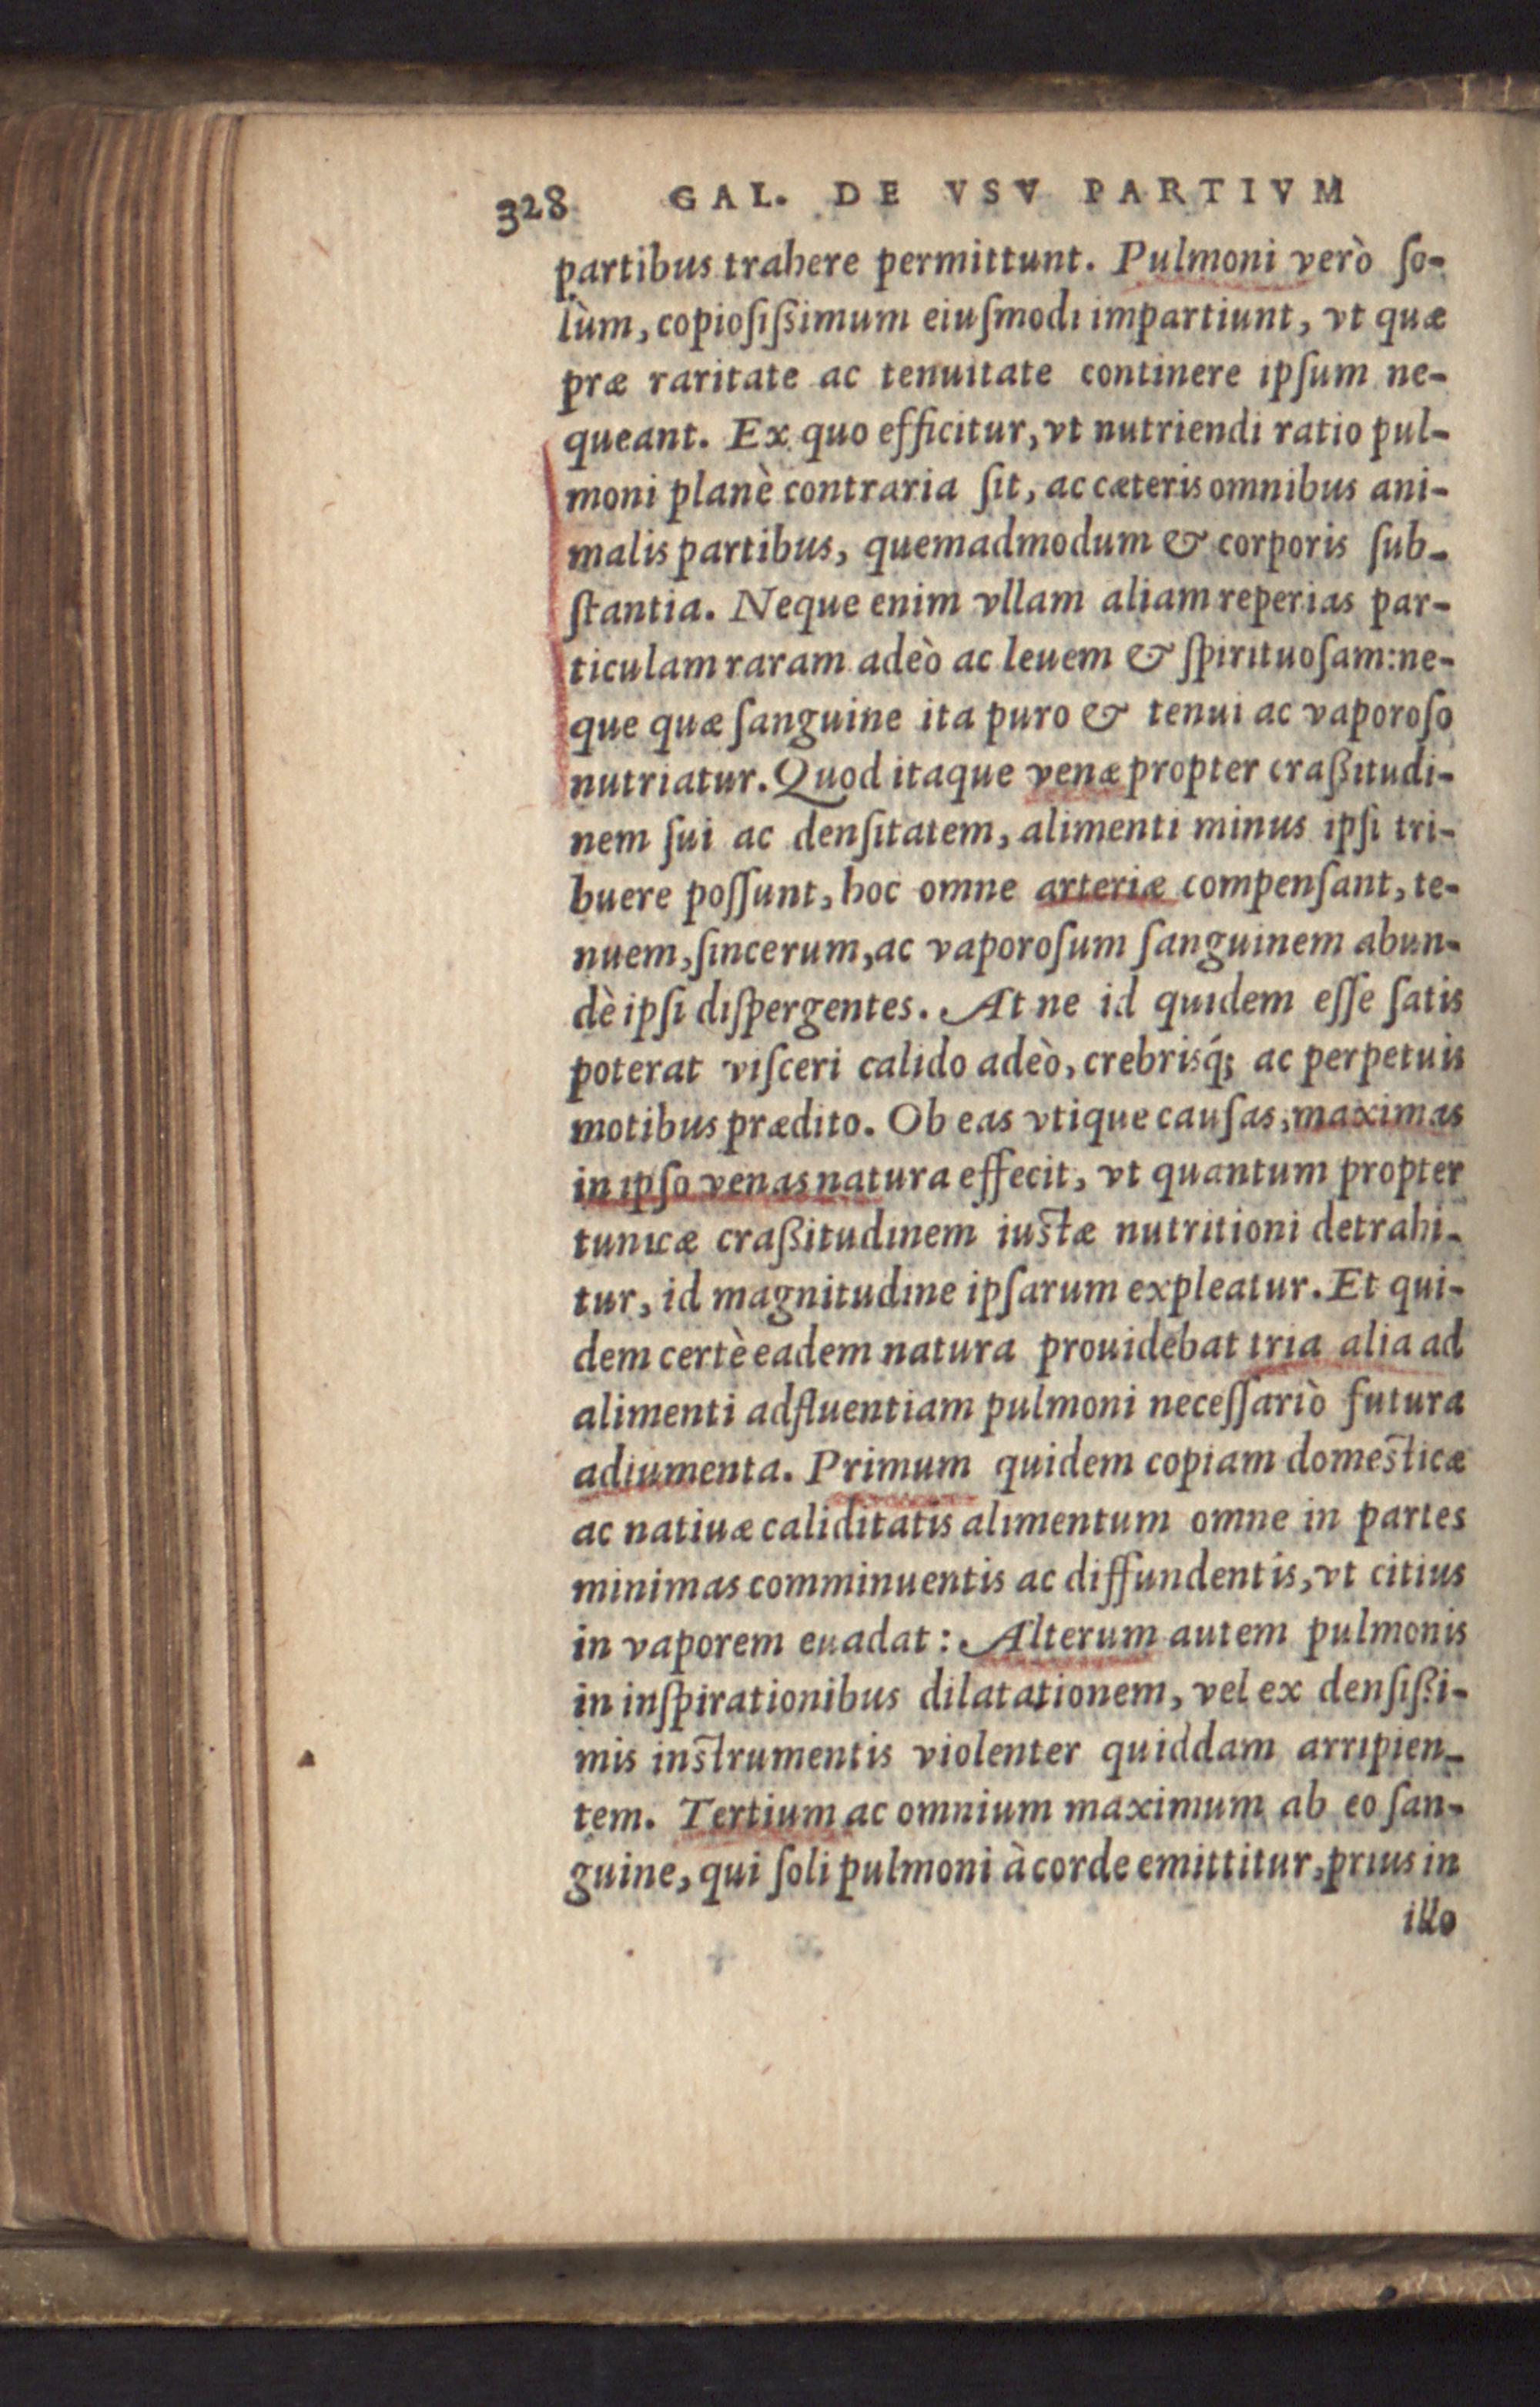 328 GAL. DE VSV PARTIVM
partibus trahere permittunt. Pulmoni verò ſo-
lùm, copioſiſsimum eiuſmodi impartiunt, vt quæ
præ raritate ac tenuitate continere ipſum ne-
queant. Ex quo efficitur, vt nutriendi ratio pul-
moni planè contraria ſit, ac cæteris omnibus ani-
malis partibus, quemadmodum & corporis ſub-
ſtantia. Neque enim vllam aliam reperias par-
ticulam raram adeò ac leuem & ſpirituoſam: ne-
que quæ ſanguine ita puro & tenui ac vaporoſo
nutriatur. Quod itaque venæ propter craßitudi-
nem ſui ac denſitatem, alimenti minus ipſi tri-
buere poſſunt, hoc omne arteriæ compenſant, te-
nuem, ſincerum, ac vaporoſum ſanguinem abun-
dè ipſi diſpergentes. At ne id quidem eſſe ſatis
poterat viſceri calido adeò, crebrisq́; ac perpetuis
motibus prædito. Ob eas vtique cauſas, maximas
in ipſo venas natura effecit, vt quantum propter
tunicæ craßitudinem iuſtæ nutritioni detrahi-
tur, id magnitudine ipſarum expleatur. Et qui-
dem certè eadem natura prouidebat tria alia ad
alimenti adfluentiam pulmoni neceſſariò futura
adiumenta. Primum quidem copiam domeſticæ
ac natiuæ caliditatis alimentum omne in partes
minimas comminuentis ac diffundentis, vt citius
in vaporem euadat: Alterum autem pulmonis
in inſpirationibus dilatationem, vel ex denſißi-
mis inſtrumentis violenter quiddam arripien-
tem. Tertium ac omnium maximum ab eo ſan-
guine, qui ſoli pulmoni à corde emittitur, prius in
illo